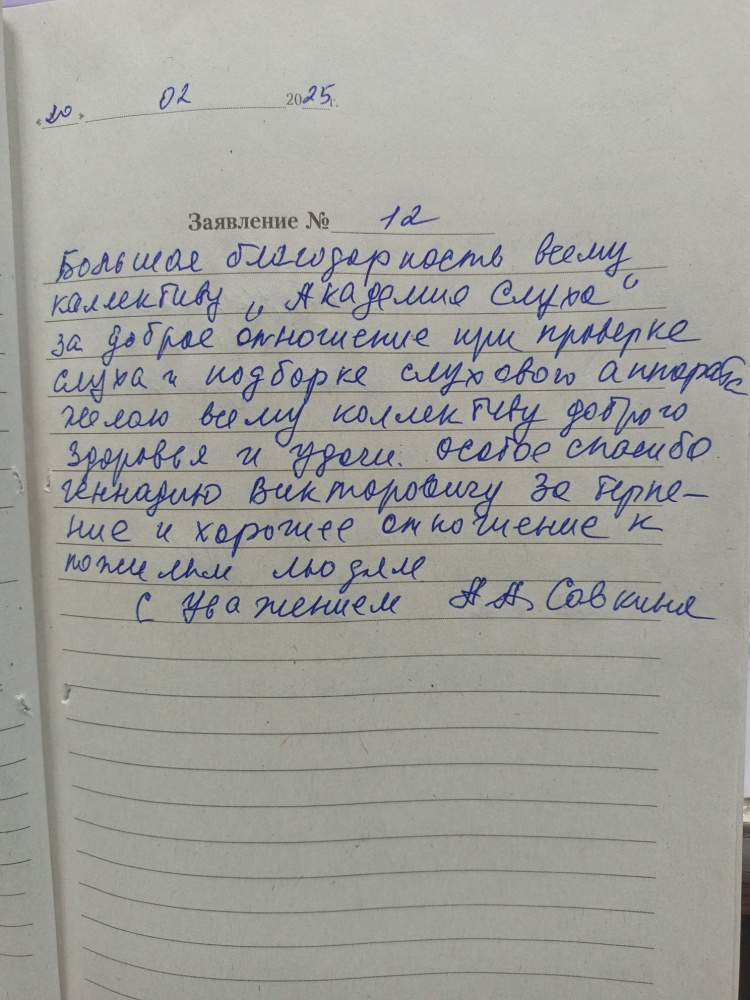 «20» 02 2025г.
Заявление № 12
Большая благодарность всему
каллективу „Академия Слуха“
за доброе отношение при проверке
слуха и подборке слухового аппарата
желаю всему коллективу доброго
здоровья и удачи. Особое спасибо
Геннадию Викторовичу за терпе-
ние и хорошее отношение к
пожилым людям
С уважением А.А. Совкина